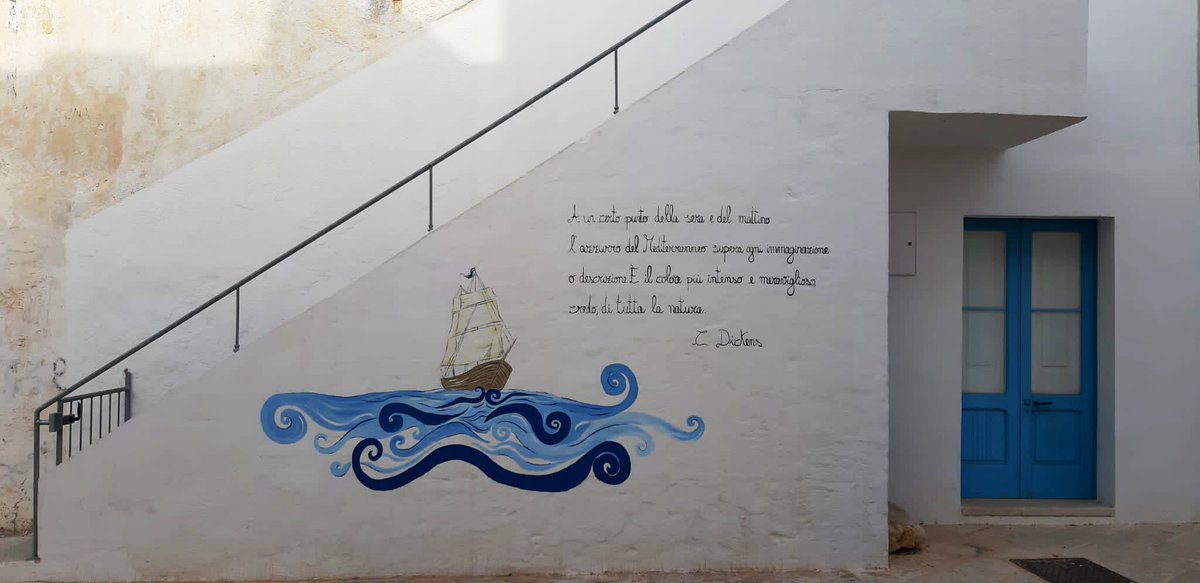 A un certo punto della sera e del mattino
l'azzurro del Mediterraneo supera ogni immaginazione
o descrizione. È il colore più intenso e meraviglioso,
credo, di tutta la natura.
C. Dickens